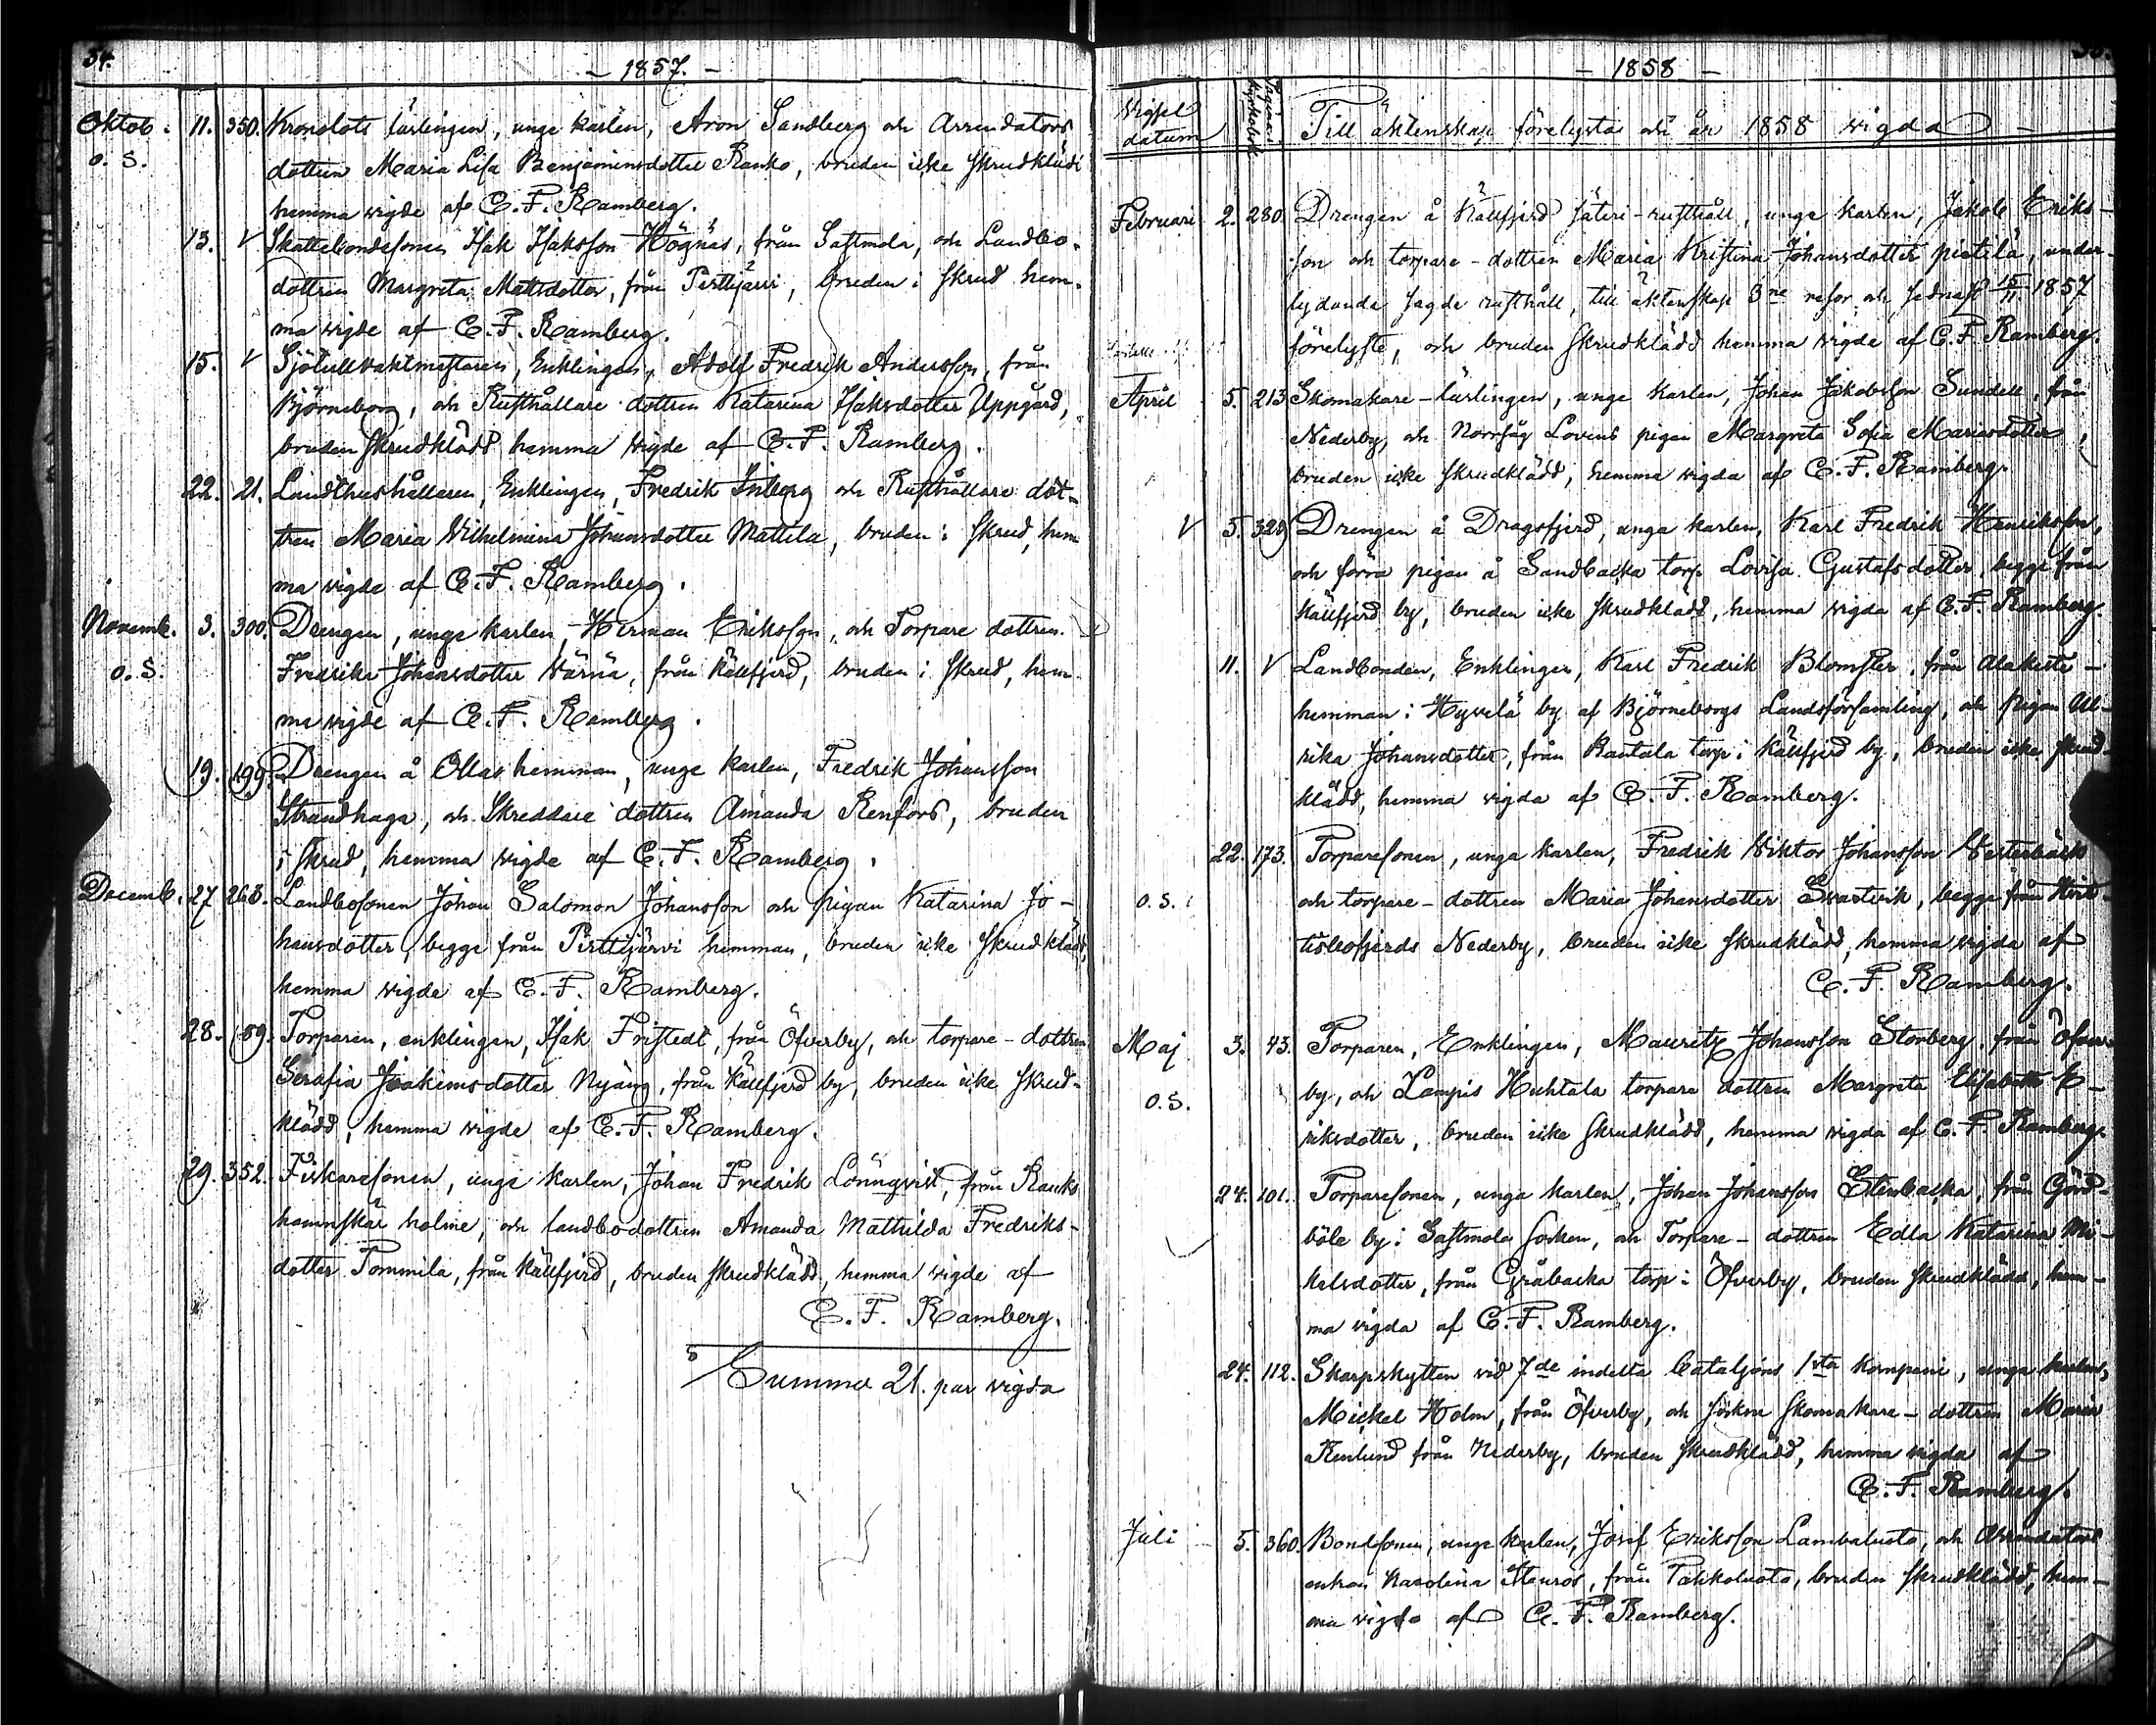 54.
— 1857. —
Oktob. 11. 350. Kronolots lärlingen, unge karlen, Aron Sandberg och Arrendators
o. S. dottren Maria Lisa Benjaminsdotter Ranko, bruden icke skrudklädd
hemma vigde af C. F. Ramberg.
13. V Skattebondesonen Isak Isaksson Högnäs, från Sastmola, och Landbo-
dottren Margreta Mattsdotter, från Perttijärvi, bruden i skrud hem-
ma vigde af C. F. Ramberg.
15. V Sjötullvaktmestaren, Enklingen, Adolf Fredrik Andersson, från
Björneborg, och Rusthållare dottren Katarina Isaksdotter Uppgård,
bruden skrudklädd hemma vigde af C. F. Ramberg.
22. 21. Landthushållaren, Enklingen, Fredrik Friberg och Rusthållare dot-
tren Maria Vilhelmina Johansdotter Mattila, bruden i skrud, hem
ma vigde af C. F. Ramberg.
Novemb. 3. 300. Drengen, unge karlen, Herman Eriksson, och Torpare dottren
o. S. Fredrika Johansdotter Värnä, från Källfjerd, bruden i skrud, hem-
ma vigde af C. F. Ramberg.
19. 199. Drengen å Ollas hemman, unge karlen, Fredrik Johansson
Strandhaga, och Skreddare dottren Amanda Renfors, bruden
i skrud, hemma vigde af C. F. Ramberg.
Decemb. 27 263. Landbosonen Johan Salomon Johansson och pigan Katarina Jo-
hansdotter, begge från Perttijärvi hemman, bruden icke skrudklädd,
hemma vigde af C. F. Ramberg.
28. 159. Torparen, enklingen, Isak Fristedt, från Öfverby, och torpare-dottren
Serafia Joakimsdotter Nyäng, från Källfjerd by, bruden icke skrud-
klädd, hemma vigde af C. F. Ramberg.
29. 352. Fiskaresonen, unge karlen, Johan Fredrik Lönnqvist, från Räuks
hamnskär holme, och landbodottren Amanda Mathilda Fredriks-
dotter Tommila, från Källfjerd, bruden skrudklädd, hemma vigde af
C. F. Ramberg.
Summa 21. par vigda
— 1858 —
Vigsel datum Till äktenskap förelysta och år 1858 vigda —
Februari 2. 280. Drengen å Källfjerd säteri-rusthåll, unge karlen, Jakob Eriks-
son och torpare-dottren Maria Kristina Johansdotter pietilä, under-
lydande sagde rusthåll, till äktenskap 3ne resor och sednast 15/11 1857
förelyste, och bruden skrudklädd hemma vigde af C. F. Ramberg.
April 5. 213 Skomakare-lärlingen, unge karlen, Johan Jakobsson Sundell, från
Nederby, och Norrsåg Lovins pigan Margreta Sofia Mariasdotter,
bruden icke skrudklädd, hemma vigda af C. F. Ramberg.
V 5. 329 Drengen å Dragsfjerd, unga karlen, Karl Fredrik Henriksson,
och förra pigan å Sandbacka torp Lovisa Gustafsdotter, begge från
Källfjerd by, bruden icke skrudklädd, hemma vigda af C. F. Ramberg.
11. V Landbonden, Enklingen, Karl Fredrik Blomster, från Alakeste-
hemman i Hyvelä by af Björneborgs Landsförsamling, och pigan Ul-
rika Johansdotter, från Rantala torp i Källfjerd by, bruden icke skrud-
klädd, hemma vigda af C. F. Ramberg.
22. 173. Torparesonen, unga karlen, Fredrik Viktor Johansson Vesterbäck
o. S. och torpare-dottren Maria Johansdotter Svartvik, begge från Hvit-
tisbofjerds Nederby, bruden icke skrudklädd, hemma vigda af
C. F. Ramberg.
Maj 3. 43. Torparen, Enklingen, Mauritz Johansson Storberg, från Öfver-
o. S. by, och Lampis Huhtala torpare dottren Margreta Elisabeth E-
riksdotter, bruden icke skrudklädd, hemma vigda af C. F. Ramberg.
24. 101. Torparesonen, unga karlen, Johan Johansson Stenbacka, från Gård-
böle by i Sastmola socken, och Torpare-dottren Edla Katarina Mi-
kelsdotter, från Gråbacka torp i Öfverby, bruden skrudklädd, hem-
ma vigda af C. F. Ramberg.
24. 112. Skarpskytten vid 7de indelta Bataljons 1sta kompani, unga karlen,
Mickel Holm, från Öfverby, och socknne skomakare-dottren Maria
Renlund från Nederby, bruden skrudklädd, hemma vigda af
C. F. Ramberg.
Juli 5. 360. Bondsonen, unge karlen, Josef Eriksson Lambaluoto, och Arrendators
enkan Karolina Stenros, från Tahkoluoto, bruden skrudklädd, hem-
ma vigda af C. F. Ramberg.